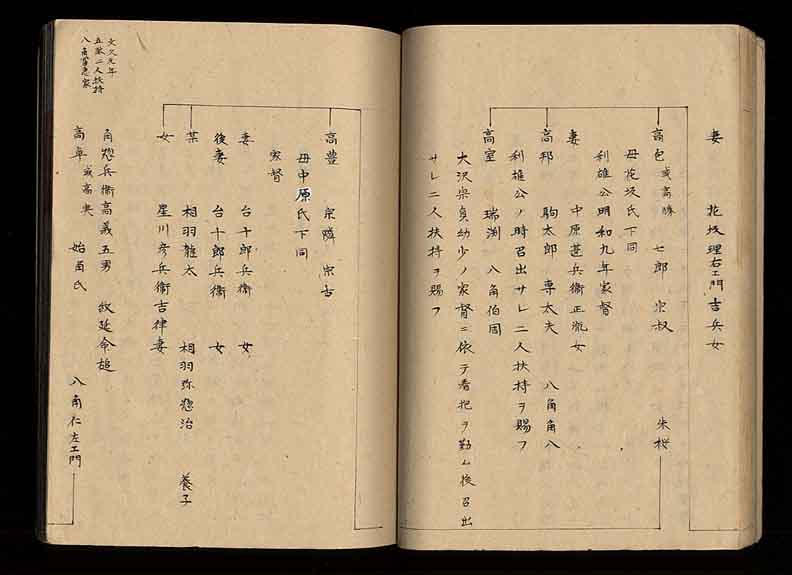 妻 花坂理右エ門吉兵女
高包 或高勝 七郎 宗叔 朱桜
母花坂氏下同
利雄公明和九年家督
妻 中原甚兵衛正流女
高邦 駒太郎 専太夫 八角角八
利雄公ノ時召出サレ二人扶持ヲ賜フ
高室 瑞渕 八角伯固
大沢宗貞幼少ノ家督ニ依テ看抱ヲ勤ム後召出
サレ二人扶持ヲ賜フ
高豊 宗隣 宗古
母中原氏下同
家督
妻 台十郎兵衛 女
後妻 台十郎兵衛 女
某 相羽雄太 相羽弥惣治 養子
女 星川彦兵衛吉律妻
文久元年
五駄二人扶持
八角宗意家
角惣兵衛高義五男 紋延命槌
高卓 或高央 始百氏 八角仁左エ門